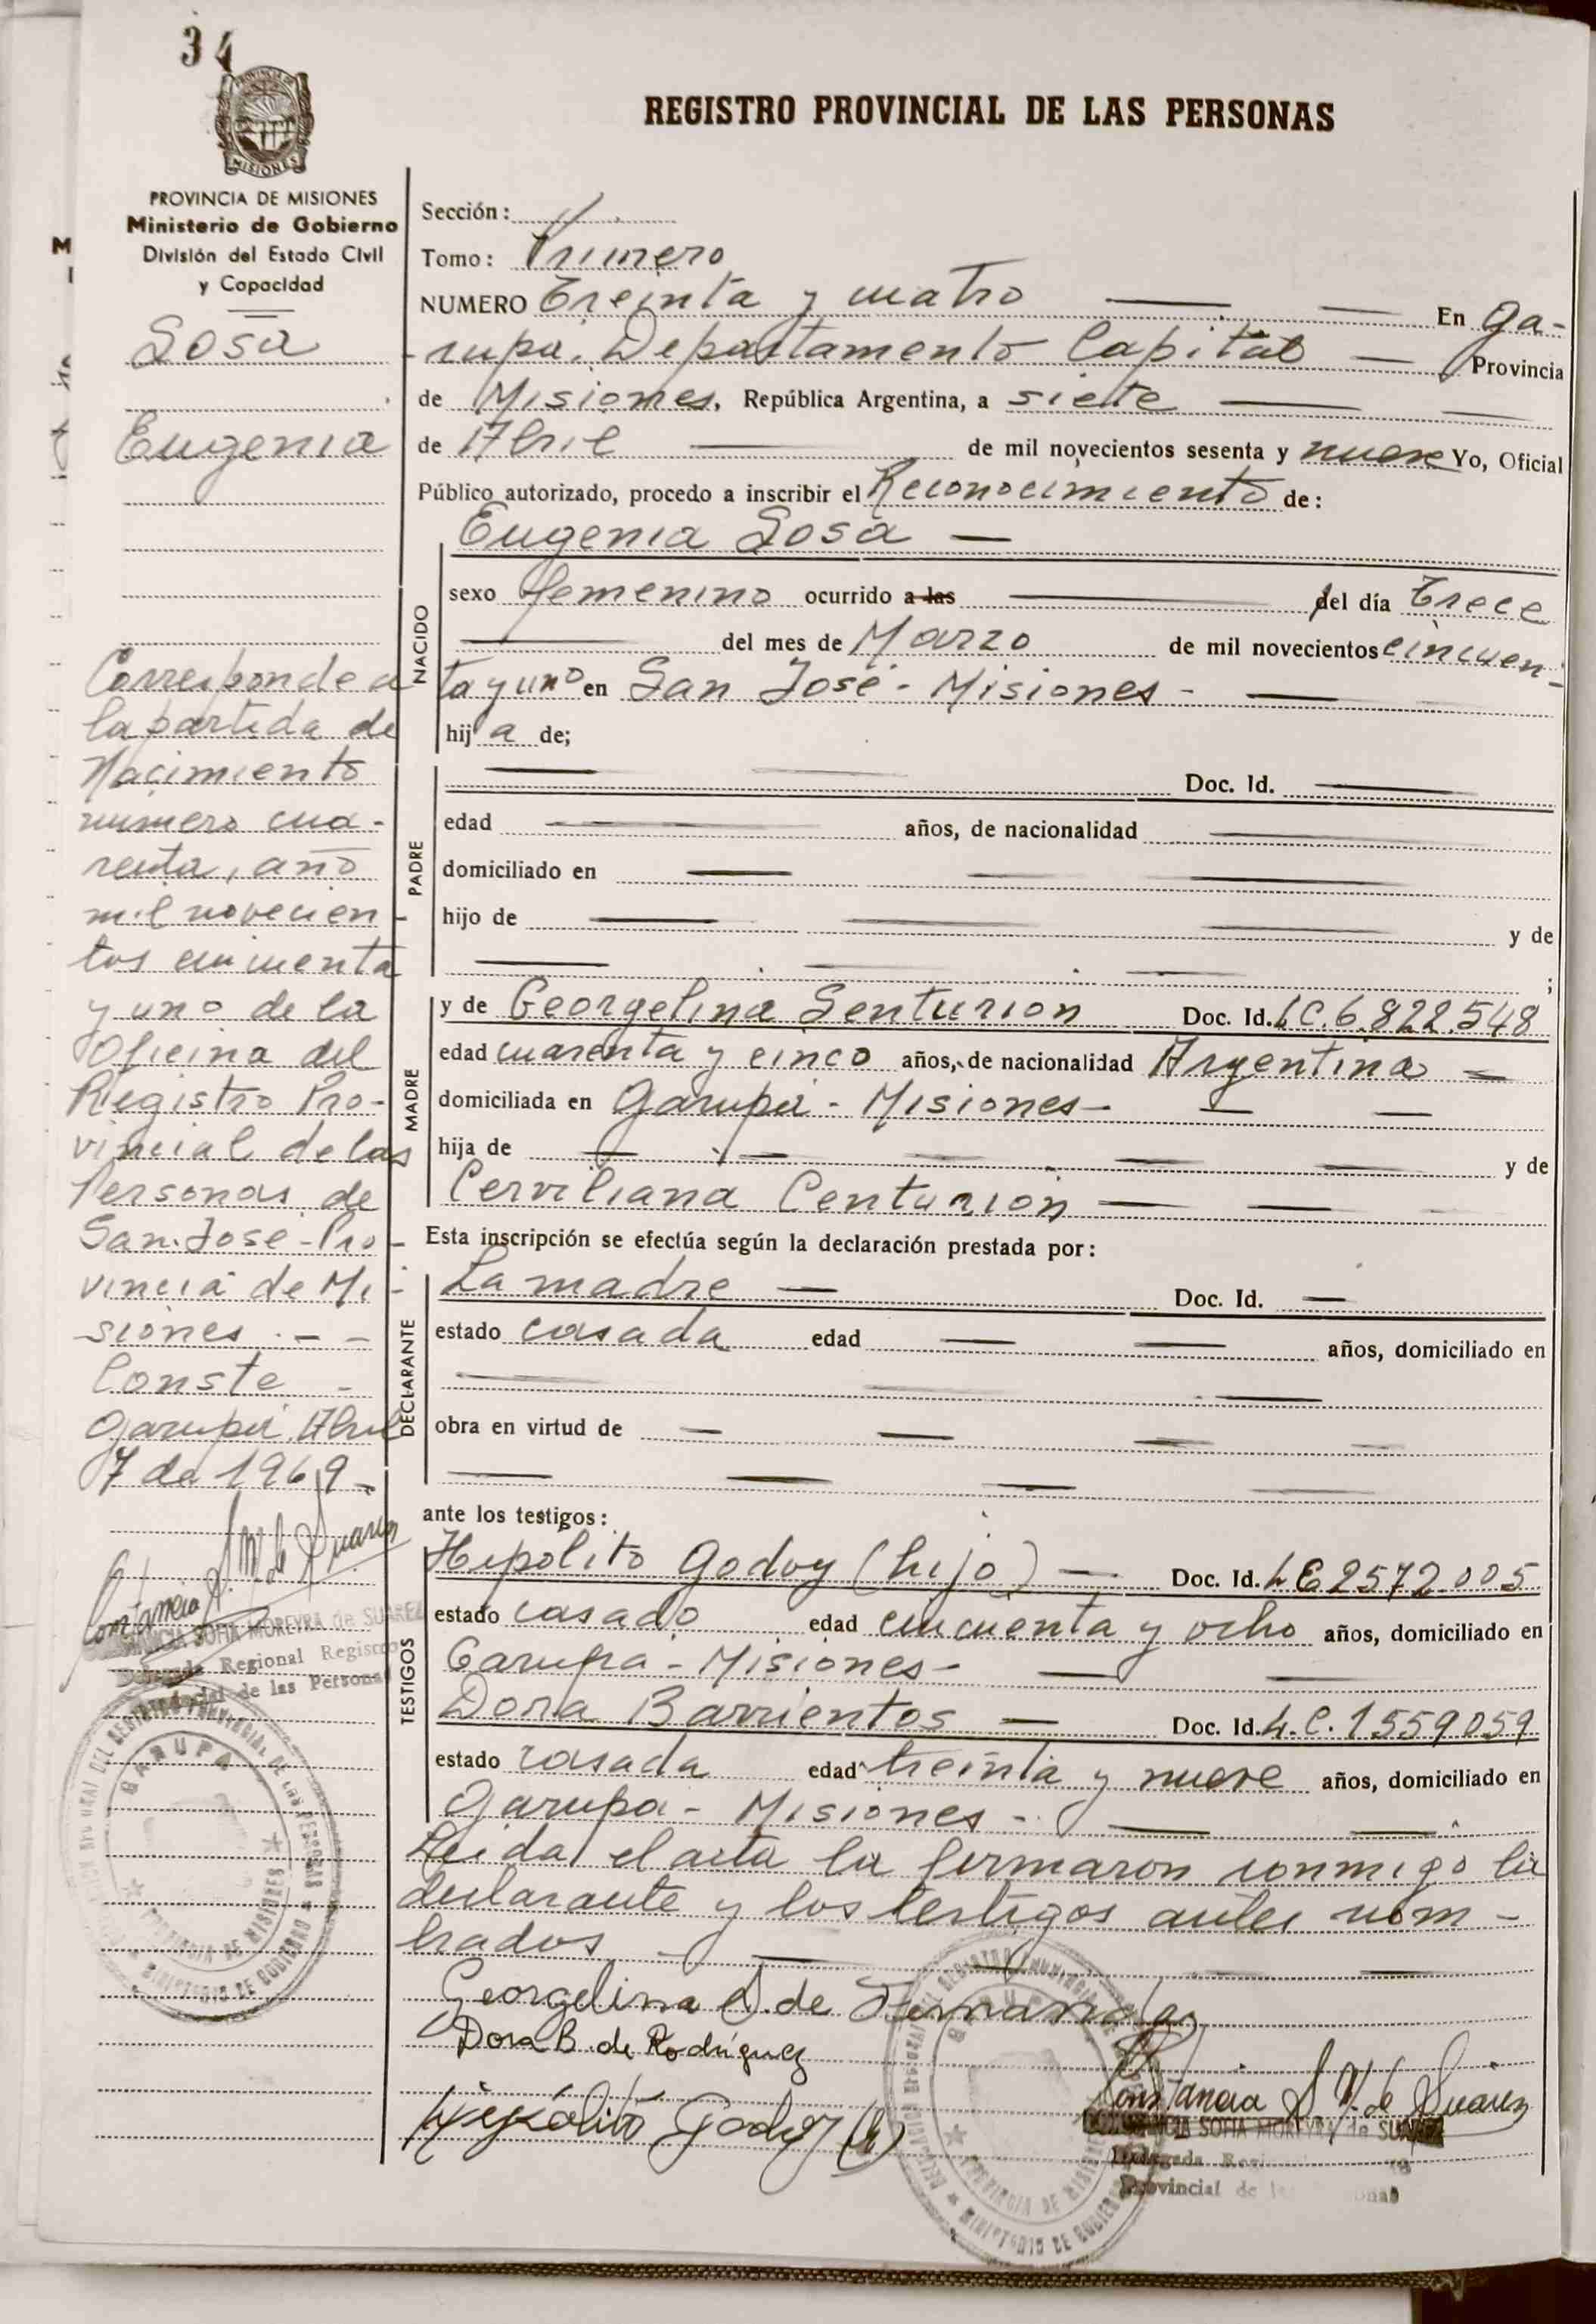 34
MISIONES
PROVINCIA DE MISIONES
Ministerio de Gobierno
División del Estado Civil
y Capacidad
Sosa
Eugenia
Corresponde a
la partida de
Nacimiento
numero cua-
renta, año
mil novecien
tos cincuenta
y uno de la
Oficina del
Registro Pro-
vincial de las
Personas de
San José - Pro
vincia de Mi-
siones . - -
Conste -
Garupá, Abril
7 de 1969 -
Constancia S. M. de Suárez
CONSTANCIA SOFIA MOREYRA de SUAREZ
Delegada Regional Registro
Provincial de las Personas
GARUPA
PROVINCIA DE MISIONES
MINISTERIO DE GOBIERNO
REGISTRO PROVINCIAL DE LAS PERSONAS
Sección:
Tomo: Primero
NUMERO Treinta y cuatro En Ga-
rupá. Departamento Capital Provincia
de Misiones, República Argentina, a siete
de Abril de mil novecientos sesenta y nueve Yo, Oficial
Público autorizado, procedo a inscribir el Reconocimiento de:
NACIDO
Eugenia Sosa
sexo femenino ocurrido a las del día Trece
del mes de Marzo de mil novecientos cincuen-
ta y uno en San José - Misiones -
hija de;
PADRE
Doc. Id.
edad años, de nacionalidad
domiciliado en
hijo de y de
;
MADRE
y de Georgelina Senturion Doc. Id. LC. 6.822.548
edad cuarenta y cinco años, de nacionalidad Argentina
domiciliada en Garupá - Misiones -
hija de y de
Cerviliana Centurion
Esta inscripción se efectúa según la declaración prestada por:
DECLARANTE
La madre Doc. Id.
estado casada edad años, domiciliado en
obra en virtud de
ante los testigos:
TESTIGOS
Hipólito Godoy (hijo) Doc. Id. LE 2572.005
estado casado edad cincuenta y ocho años, domiciliado en
Garupa - Misiones -
Dora Barrientos Doc. Id. L.C. 1559059
estado casada edad treinta y nueve años, domiciliado en
Garupa - Misiones -
Leida el acta la firmaron conmigo la
declarante y los testigos antes nom-
brados
Georgelina S. de Fernandez
Dora B. de Rodríguez
Hipólito Godoy (h)
Constancia S. M. de Suárez
CONSTANCIA SOFIA MOREYRA de SUAREZ
Delegada
Provincial de
GARUPA
PROVINCIA DE MISIONES
MINISTERIO DE GOBIERNO